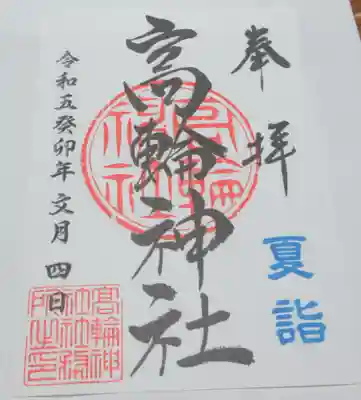 奉拝
夏詣
高輪神社
令和五癸卯年 文月 四日
高輪神
社社務
所之印